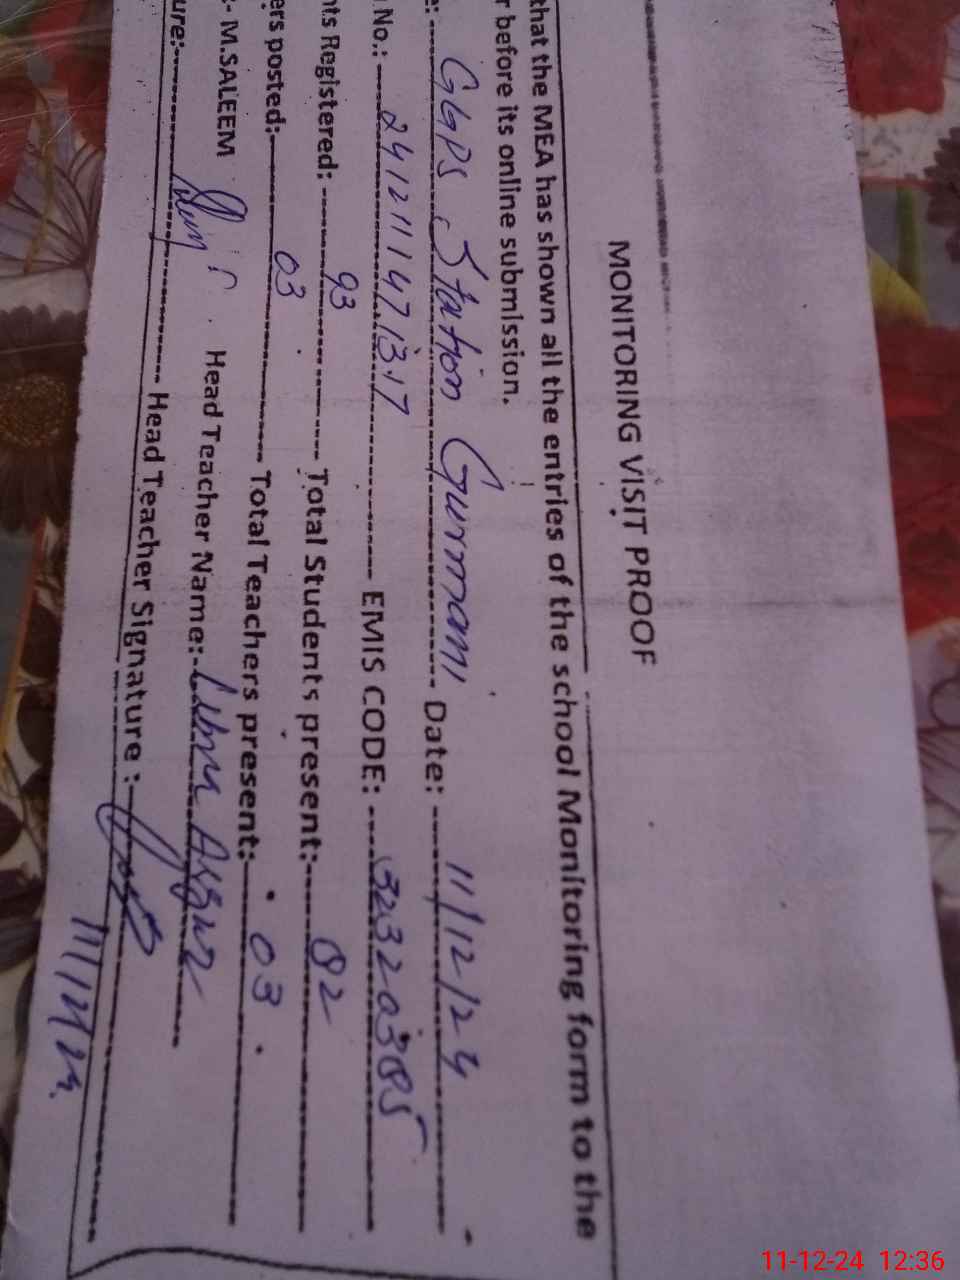 MONITORING VISIT PROOF
that the MEA has shown all the entries of the school Monitoring form to the
r before its online submission.
e: GGPS Station Gurmani Date: 11/12/24
No.: 2412111471317 EMIS CODE: 32320385
nts Registered: 93 Total Students present: 82
ers posted: 03 Total Teachers present: 03
:- M.SALEEM Head Teacher Name:- Asghar
ure: Head Teacher Signature :
11-12-24 12:36